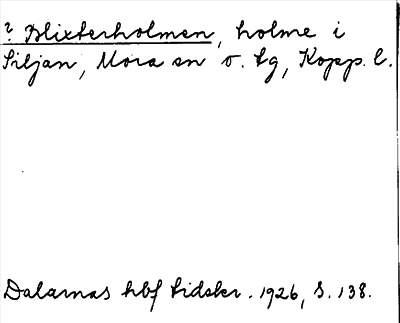 ? Blixterholmen, holme i
Siljan, Mora sn o. tg, Kopp. l.
Dalarnas hbf tidskr. 1926, S. 138.